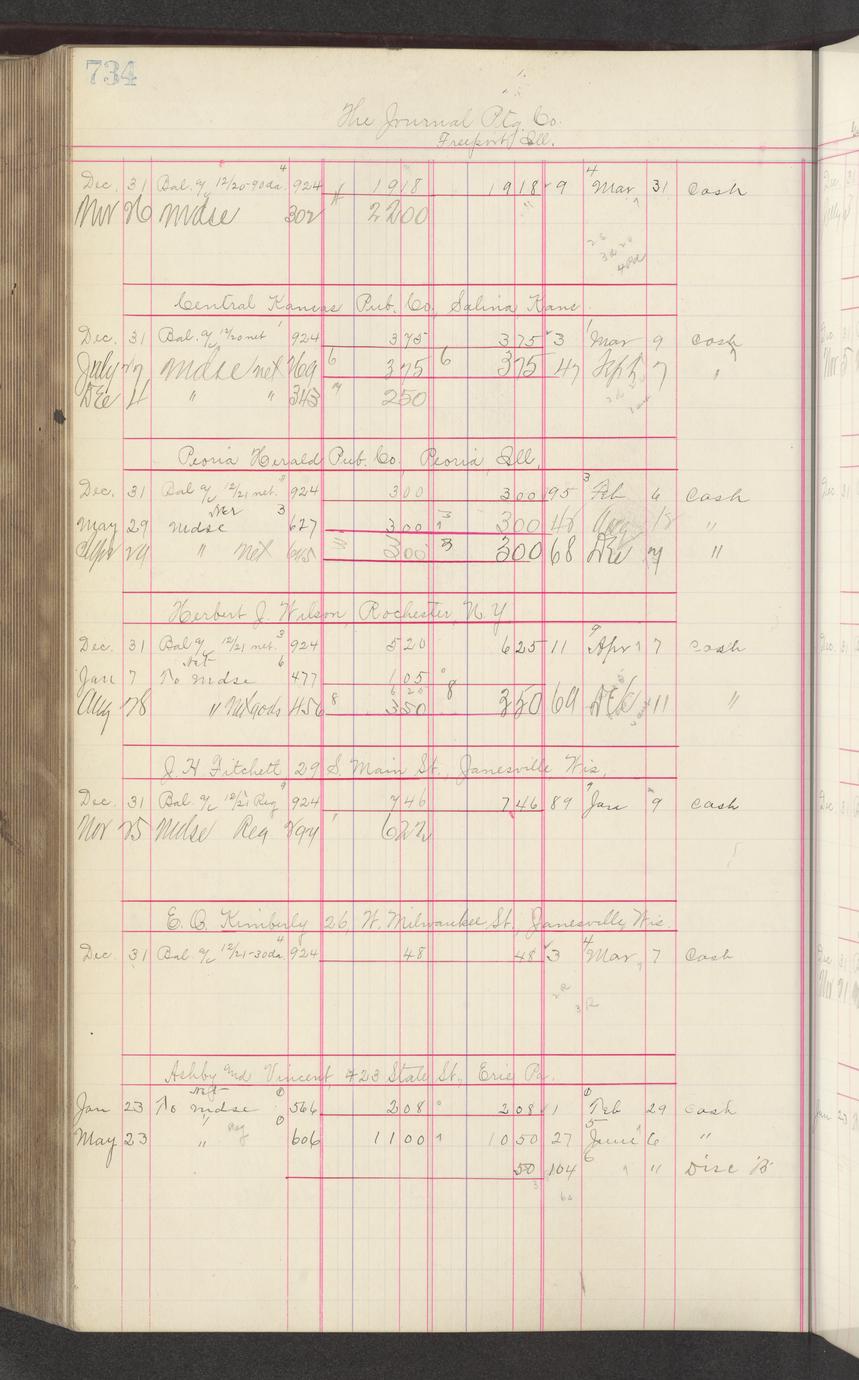 734
The Journal Ptg Co.
Freeport, Ill.
Dec. 31 Bal. a/c 12/20-90da. 4 924 1918 1918 9 4 Mar 31 Cash
Nov 26 Mdse 302 2200
Central Kansas Pub. Co, Salina Kans.
Dec. 31 Bal. a/c 12/20 net 1 924 375 375 3 1 Mar 9 Cash
July 27 Mdse net 269 6 375 6 375 47 Sept 7 "
Dec 4 " " 343 250
Peoria Herald Pub. Co. Peoria, Ill.
Dec. 31 Bal a/c 12/21 net. 924 300 300 95 3 Feb 6 Cash
May 29 mdse Net 3 627 300 3 300 48 Aug 18 "
29 " net 300 3 300 68 Dec 7 "
Herbert J. Wilson, Rochester, N.Y
Dec. 31 Bal a/c 12/21 net. 3 924 520 625 11 9 Apr 7 Cash
Jan 7 To mdse Net 6 477 105
625
Aug 28 " Net 456 8 350 8 350 69 Dec 11 "
J. H. Fitchett, 29 S. Main St., Janesville Wis.
Dec. 31 Bal. a/c 12/21 Reg 9 924 746 746 89 9 Jan 9 Cash
Nov 25 Mdse Reg 294 1 622
E. B. Kimberly 26, W. Milwaukee, St., Janesville, Wis.
Dec. 31 Bal. a/c 12/21-30da. 4 924 48 48 3 4 Mar 7 Cash
Ashby and Vincent 723 State St., Erie Pa.
Jan 23 To mdse Net 0 566 208 208 1 0 Feb 29 Cash
May 23 " " Reg 0 606 1100 1050 27 5 June 6 "
50 104 6 " Disc "B"